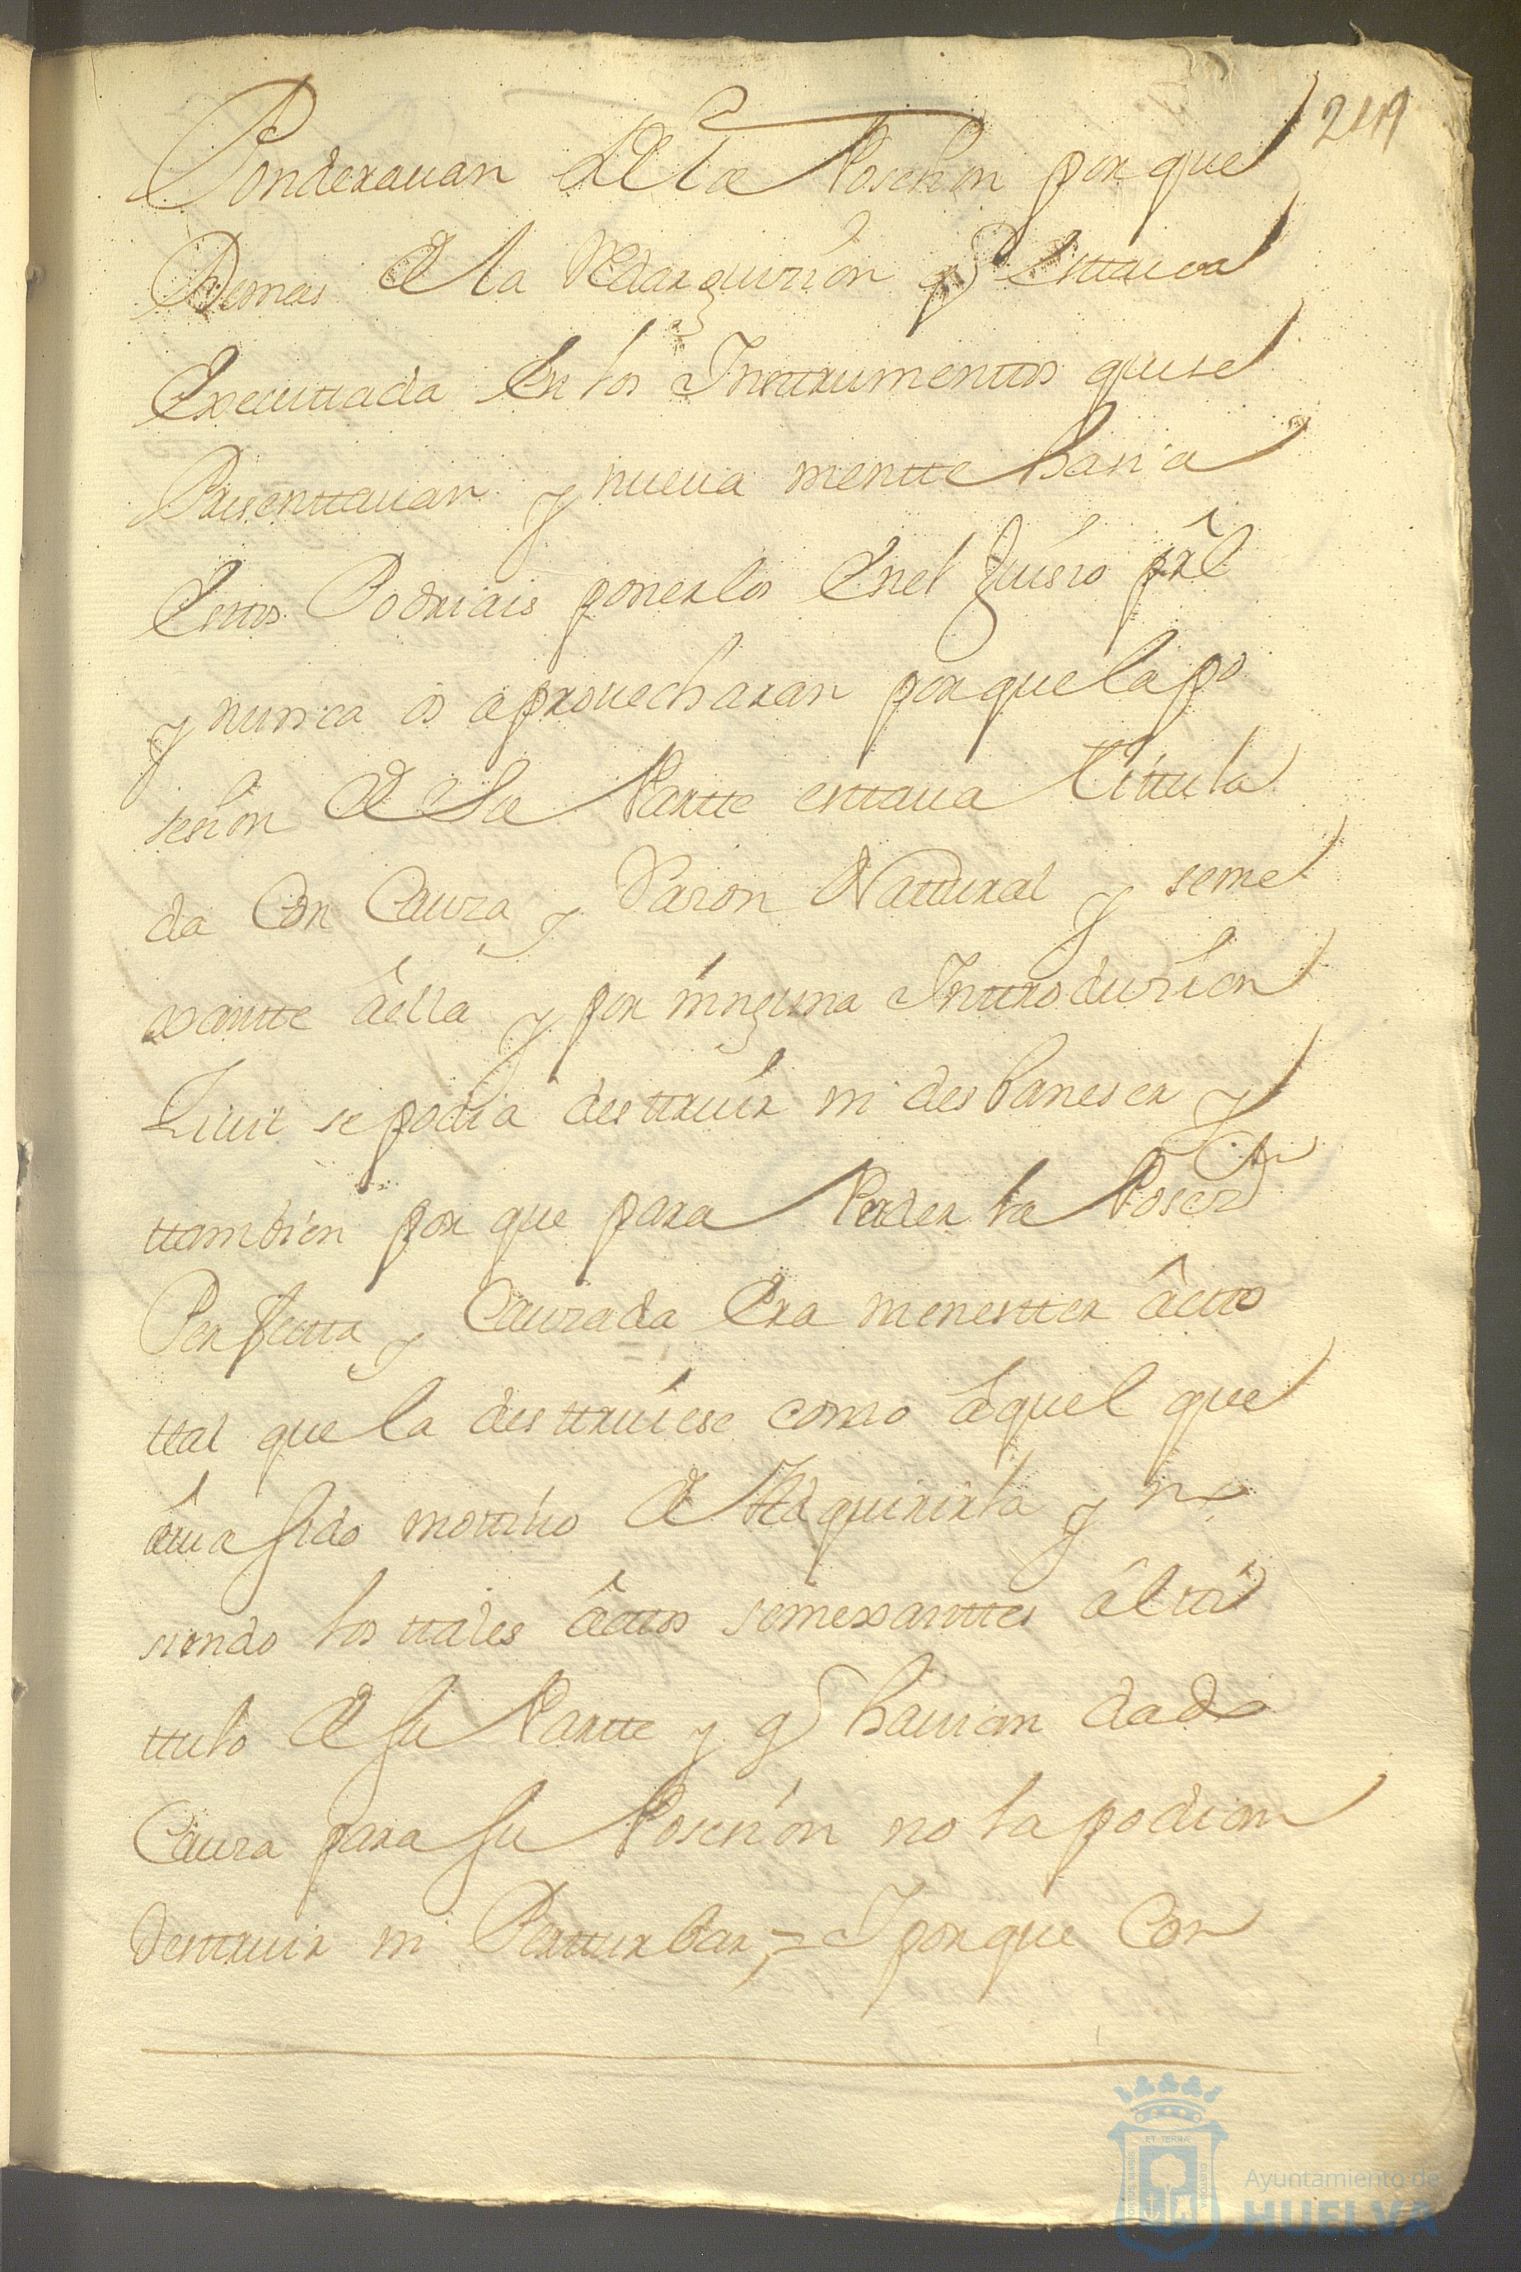 249
Ponderauan dela Posesion por que
Demas de la Redarguzion q̃ estaua
Executtada En los Insttrumenttos que se
Presenttauan y nueua mentte hasia
Esttos Podriais ponerlos Enel Juisio prãl
y nunca os aprouecharan por que la po
sesion de su Partte esttaua tittula
da Con Cauza y Razon Nattural y seme
xantte âella y por ninguna Inttroduzion
Ziuil se podia desttruir ni desbaneser y
ttambien por que para Perder la Poseson
Perfectta y Cauzada Era menestter âctto
ttal que la desttruiese como âquel que
âuia sido mottibo de Adquirirla y no
siendo los ttales âcttos semexanttes âl ti
ttulo de su Partte y q̃ hauian dado
Cauza para su Posesion no la podian
desttruir ni Pertturbar = Y por que Con
Ayuntamiento de
HUELVA